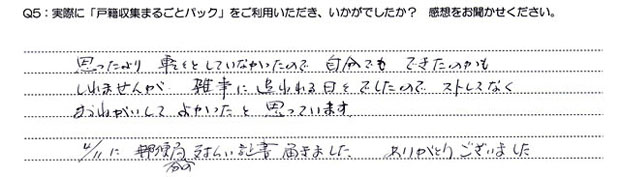 Q5：実際に「戸籍収集まるごとパック」をご利用いただき、いかがでしたか？ 感想をお聞かせください。
思ったより 転々としていなかったので 自分でも できたのかも
しれませんが 雑事に 追われる日々でしたので ストレスなく
おねがいして よかったと 思っています
4/11に 郵便局 支払い証書 届きました ありがとうございました
分の